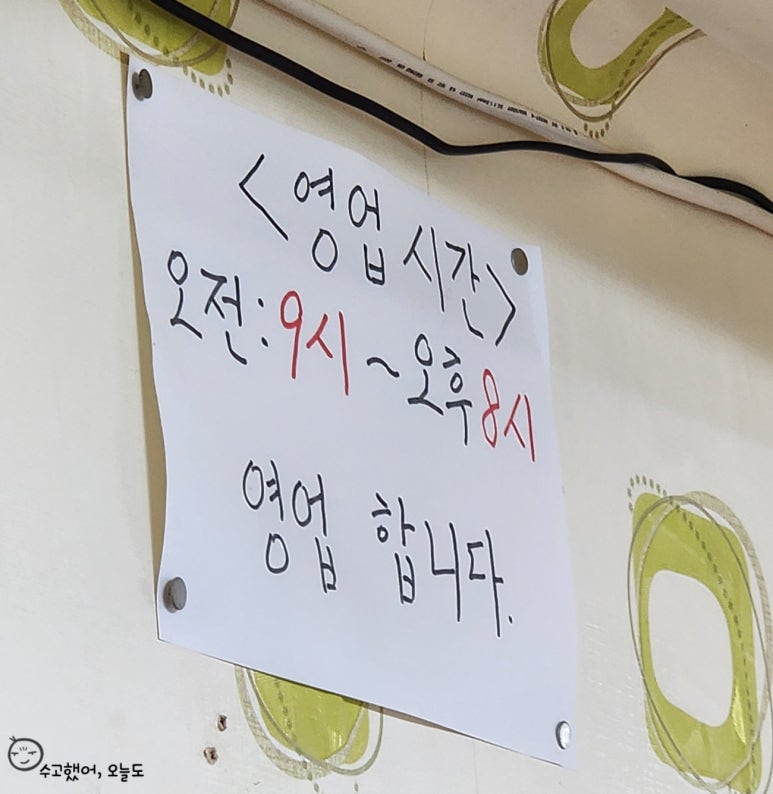 <영업시간>
오전:9시~오후8시
영업 합니다.
수고했어, 오늘도